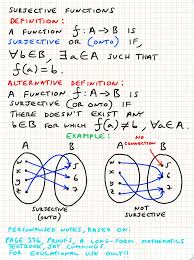 SURJECTIVE FUNCTIONS
DEFINITION:
A FUNCTION f: A → B IS
SURJECTIVE OR (ONTO) IF,
∀b∈B, ∃a∈A SUCH THAT
f(a) = b.
ALTERNATIVE DEFINITION:
A FUNCTION f: A → B IS
SURJECTIVE (OR ONTO) IF
THERE DOESN'T EXIST ANY
b∈B FOR WHICH f(a) ≠ b, ∀a∈A.
EXAMPLE:
NO
CONNECTION
A B A B
5
6
7
SURJECTIVE
(ONTO)
NOT
SURJECTIVE
PERSONALISED NOTES, BASED ON:
PAGE 276, PROOFS, A LONG-FORM MATHEMATICS
TEXTBOOK, JAY CUMMINGS.
FOR EDUCATIONAL USE ONLY!!